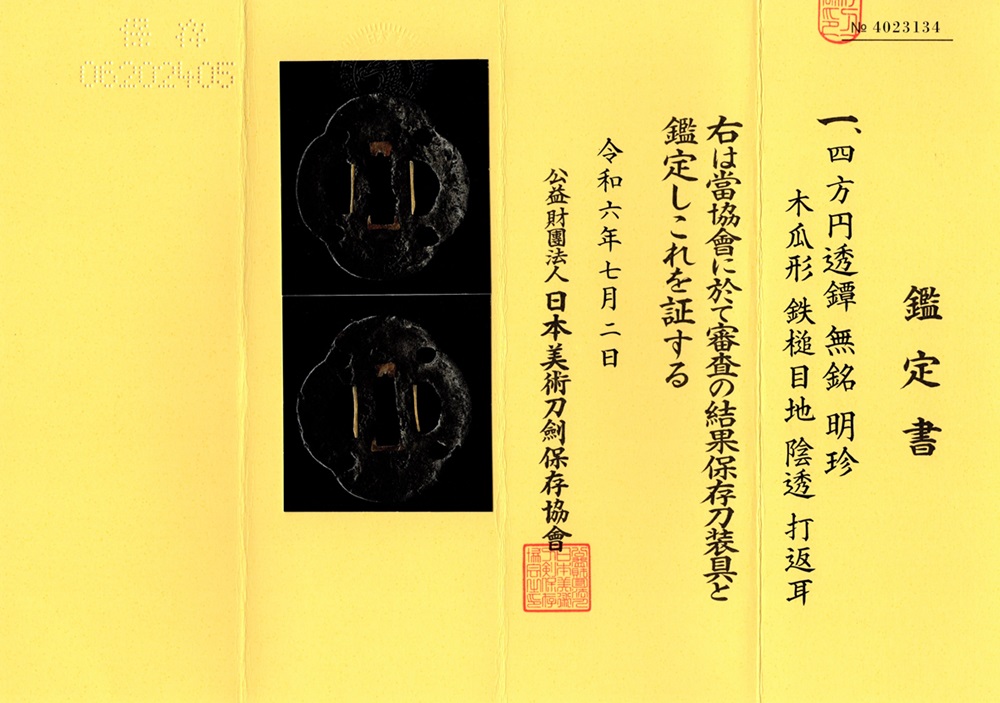 № 4023134
鑑定書
一、四方円透鐔 無銘 明珍
木瓜形 鉄槌目地 陰透 打返耳
右は當協會に於て審査の結果保存刀装具と
鑑定しこれを証する
令和六年七月二日
公益財團法人 日本美術刀劍保存協會
保存
06202405